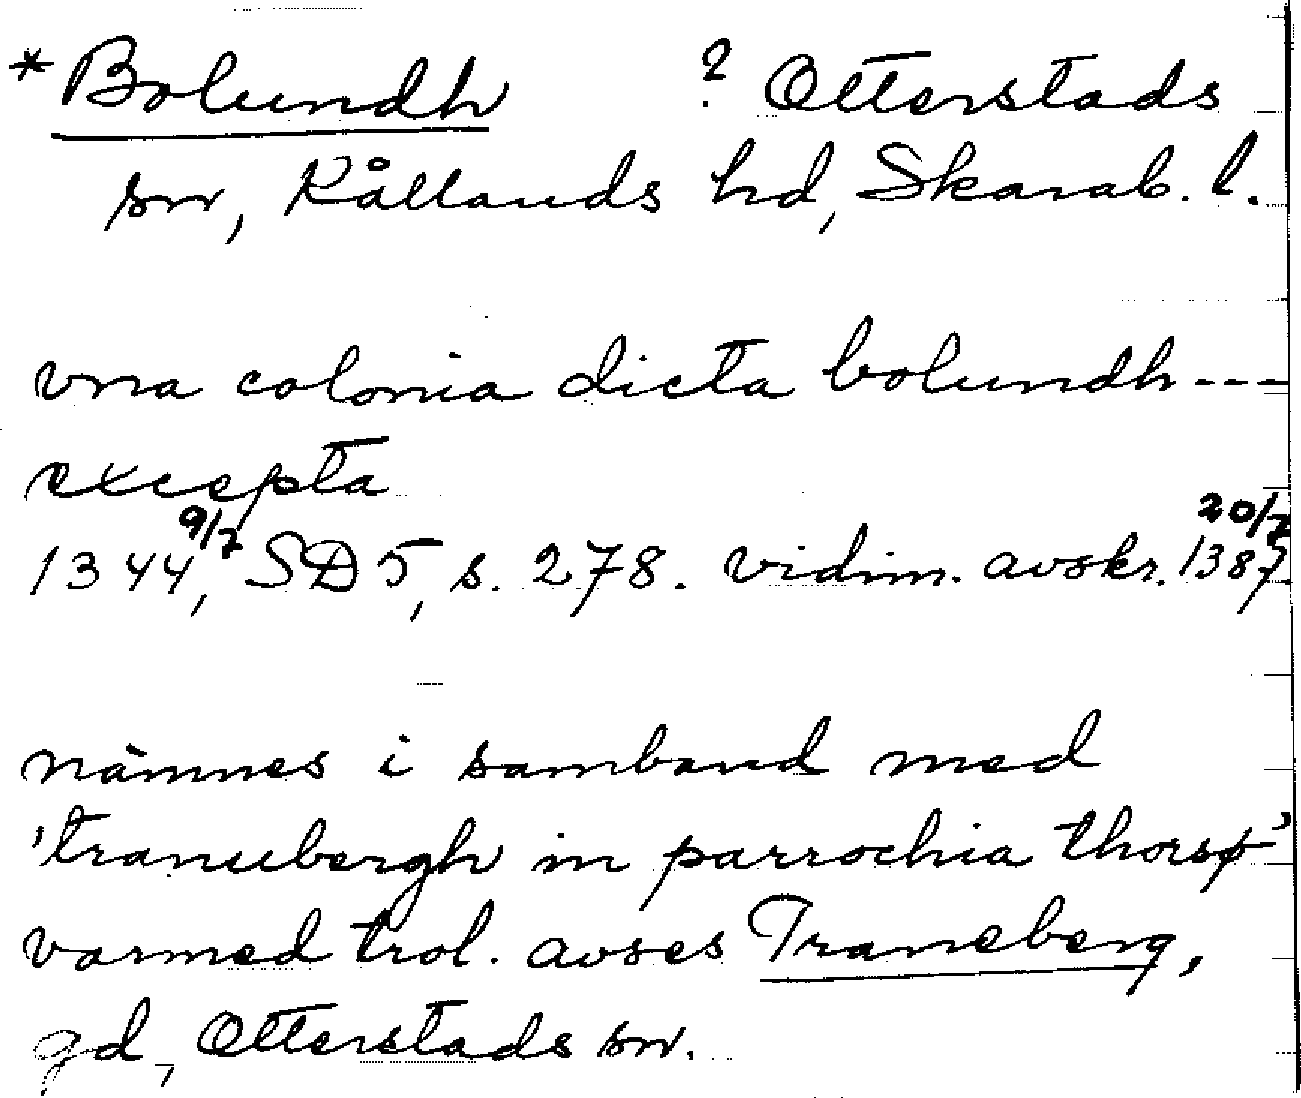 *Bolundh ? Otterstads
sn, Kållands hd, Skarab. l.
vna colonia dicta bolundh---
excepta
1344 9/7, SD 5, s. 278. vidim. avskr. 1387 20/7
nämnes i samband med
'tranubergh in parrochia thorsø'
varmed trol. avses Traneberg,
gd, Otterstads sn.